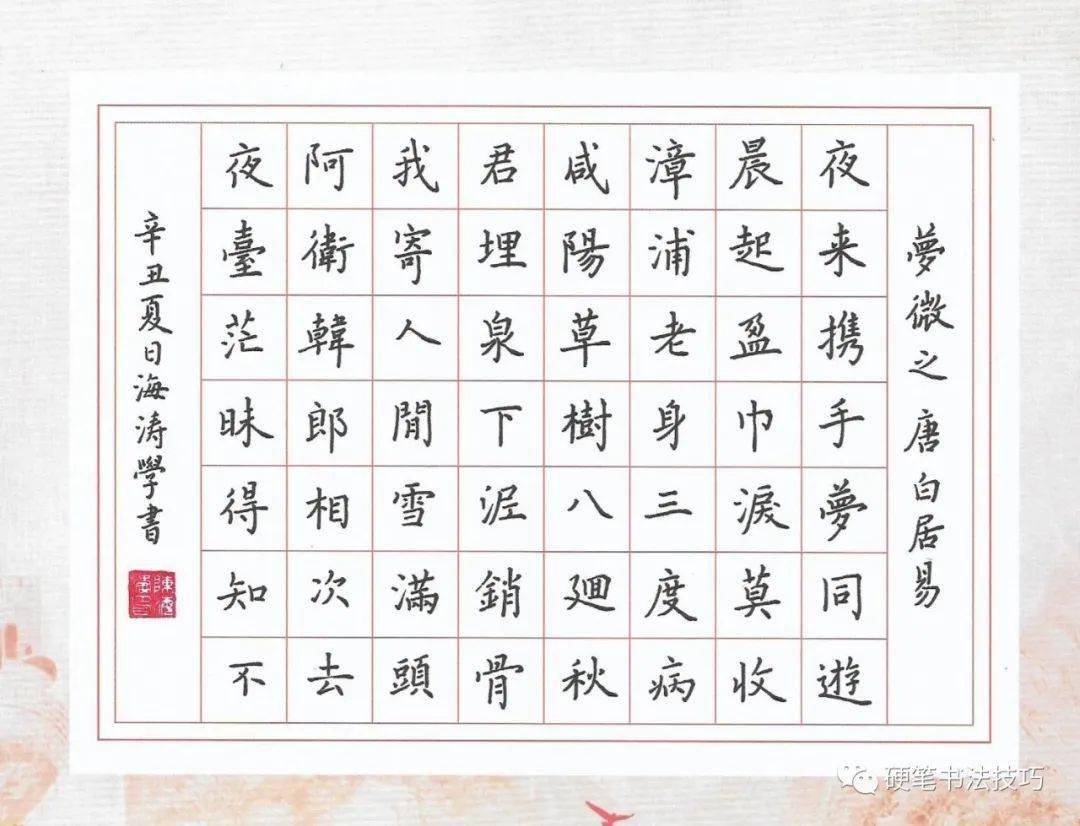 夢微之 唐白居易
夜来携手夢同遊
晨起盈巾淚莫收
漳浦老身三度病
咸陽草樹八廻秋
君埋泉下泥銷骨
我寄人間雪滿頭
阿衛韓郎相次去
夜臺茫昧得知不
辛丑夏日海涛學書
硬笔书法技巧